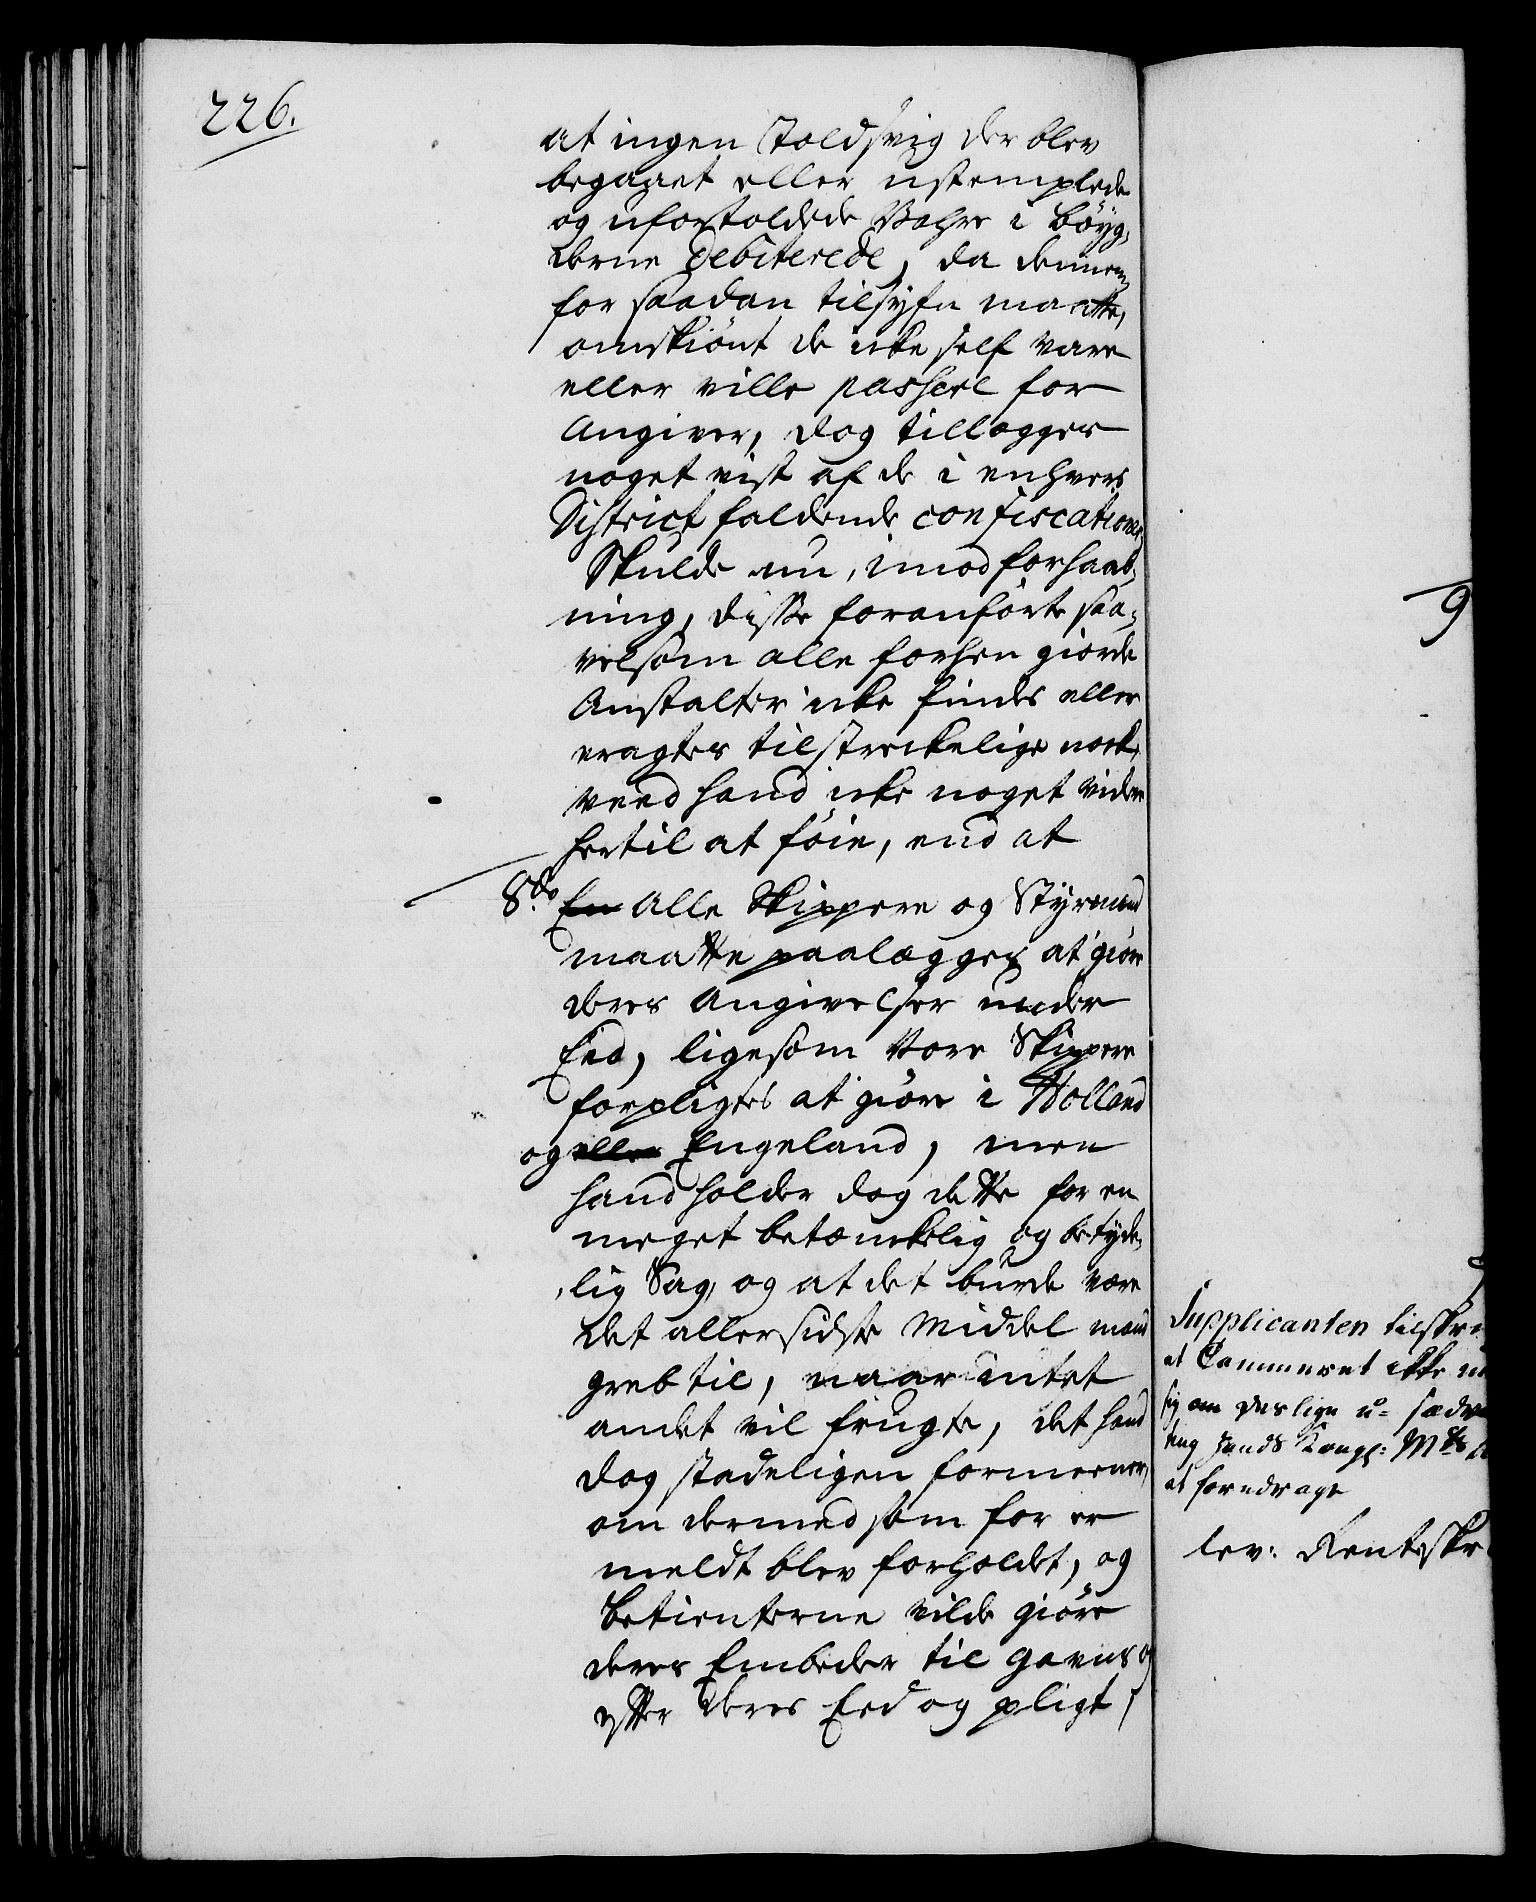 226.
at ingen Toldsvig der blev
begaaet eller ustemplede
og ufortoldede Vahre i Bøyg¬
derne debiterede, da dennem
for saadan tilsyfn maatte,
omskiønt de icke self vare
eller ville passere for
Angiver, dog tillegges
noget vist af de i enhvers
District faldende confiscationer
Skulde nu, imod forhaab¬
ning, disse foranførte saa¬
velsom alle forhen giorde
Anstalter icke findes eller
eragtes tilstreckelige nock,
veed hand icke noget videre
hertil at føie, end at
8de En Alle Skippere og Styrmænd
maatte paalegges at giøre
deres Angivelser under
Eed, ligesom Vore Skippere
forpligtes at giøre i Holland
og eller Engeland, men
hand holder dog dette for en
meget betænkelig og betyde¬
lig Sag, og at det burde være
det allersidste Middel mand
greb til, naar intet
andet vil frugte, det hand
dog stadeligen formeener,
om dermed som for er
meldt blev forholdet, og
Betienterne vilde giøre
deres Embeder til gavns og
efter deres Eed og pligt,
9
Supplicanten tilskre
at Cammeret ikke
sig om deslige u= sædv
hands Kongl: Mts
at foredrage
lev: Renteskr